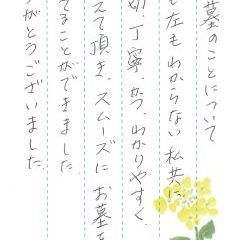 墓のことについて
も左もわからない私共に
切、丁寧、かつ、わかりやすく、
えて頂き、スムーズにお墓を
てることができました。
りがとうございました。